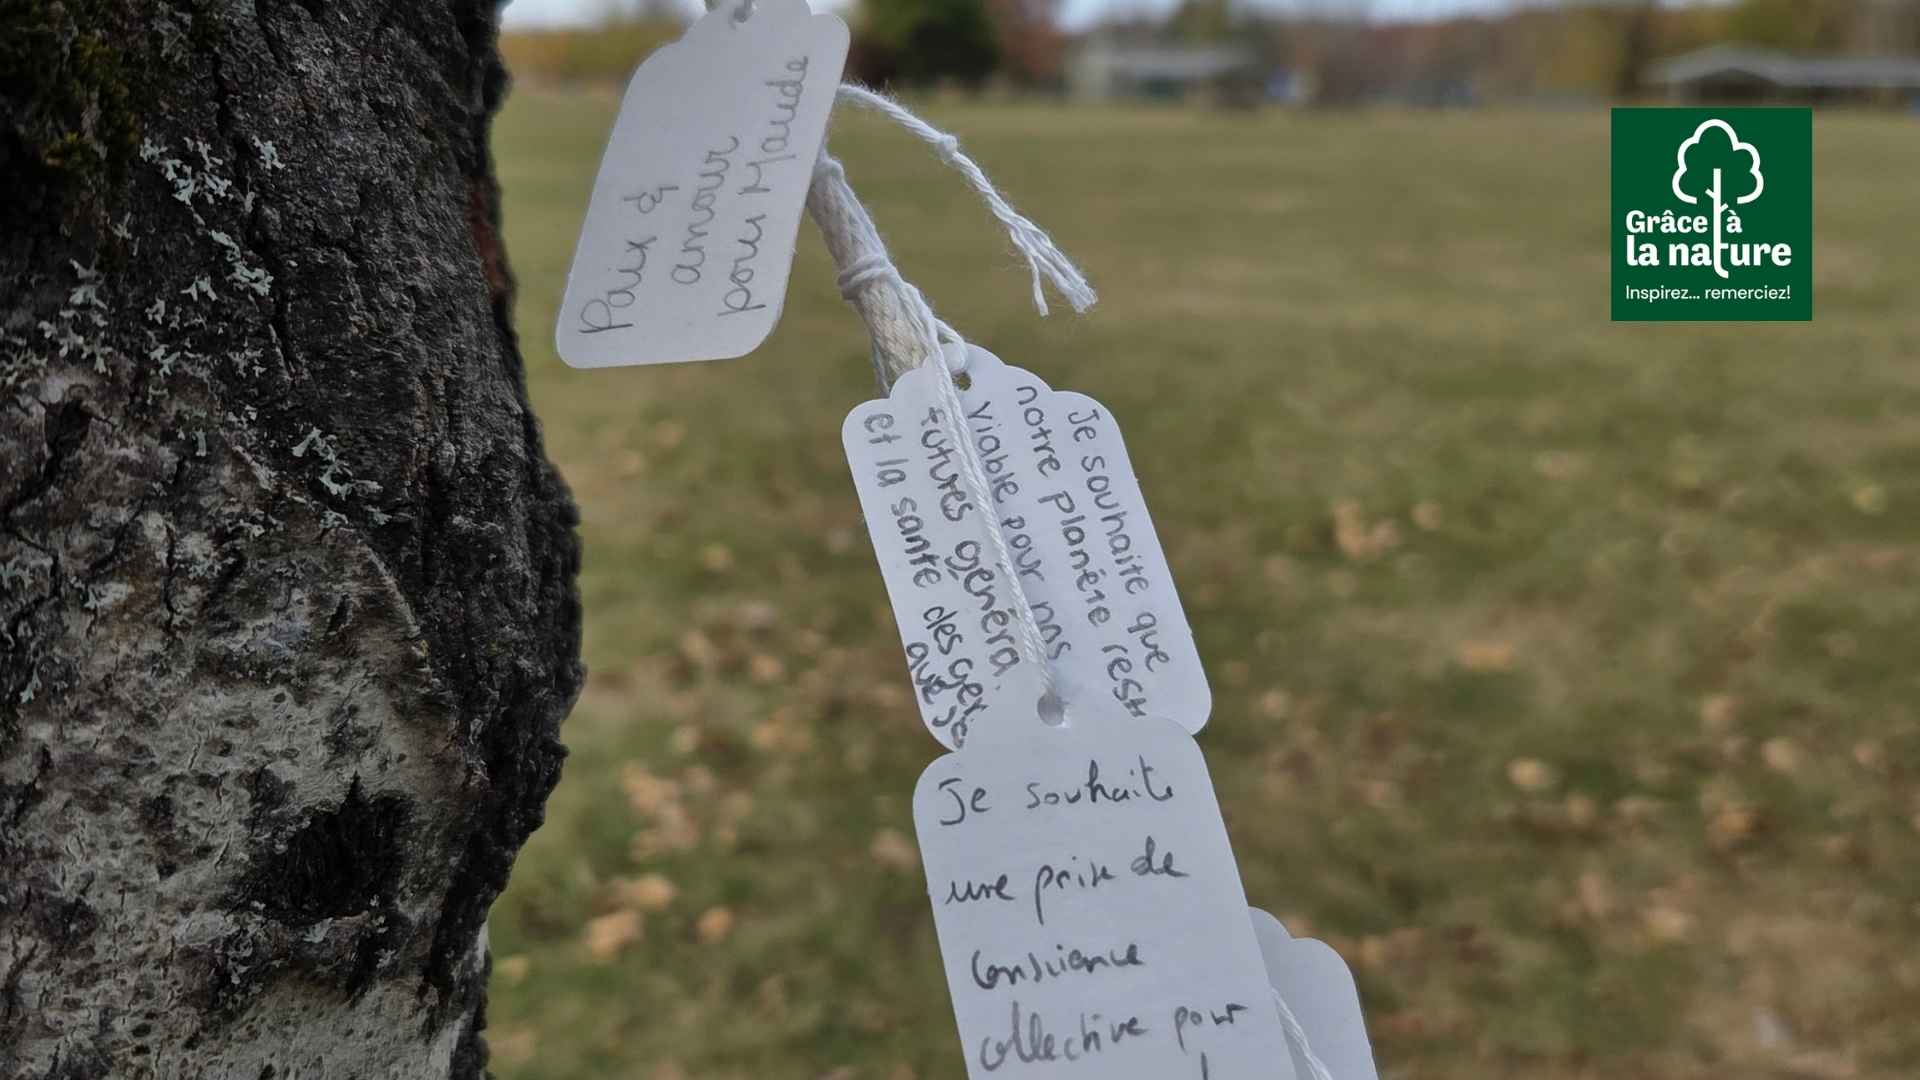 Paix &
amour
pour Maude
Je souhaite que
notre planète reste
viable pour nos
futures généra
et la santé des
Je souhaite
une prise de
Conscience
collective pour
Grâce à
la nature
Inspirez... remerciez!